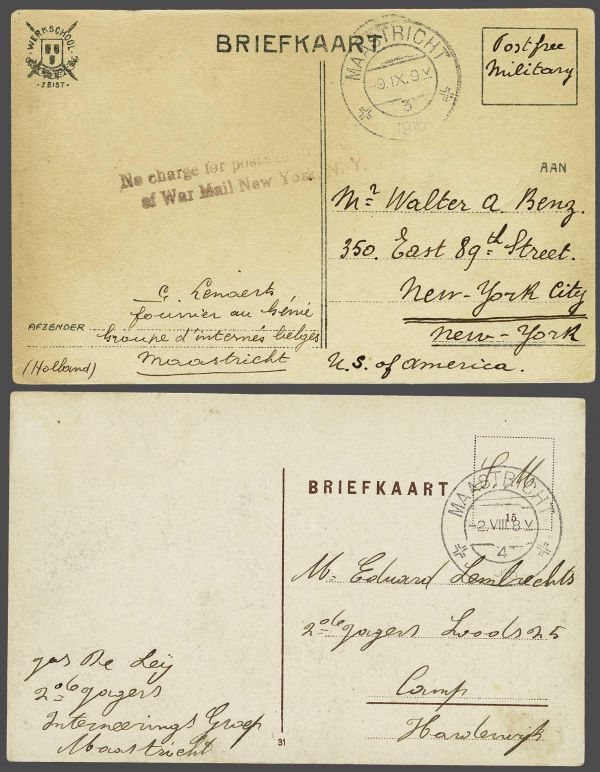 WERKSCHOOL
ZEIST
BRIEFKAART
MAASTRICHT
-9.IX.9V
3
1916
Postfree
Military
No charge for
of War Mail New York, N. Y.
AAN
Mr. Walter A. Benz.
350. East 89th Street.
New-York City
New-York
U.S. of America.
G. Lenaerts
fourrier au Génie
AFZENDER
Groupe d'internés belges
Maastricht
(Holland)
BRIEFKAART
S. M.
MAASTRICHT
-2.VIII.8V
15
4
Mr. Eduard Lambrechts
2de jagers Loods 25
Camp
Harderwyk
Jos De Leÿ
2de jagers
Interneerings Groep
Maastricht
31